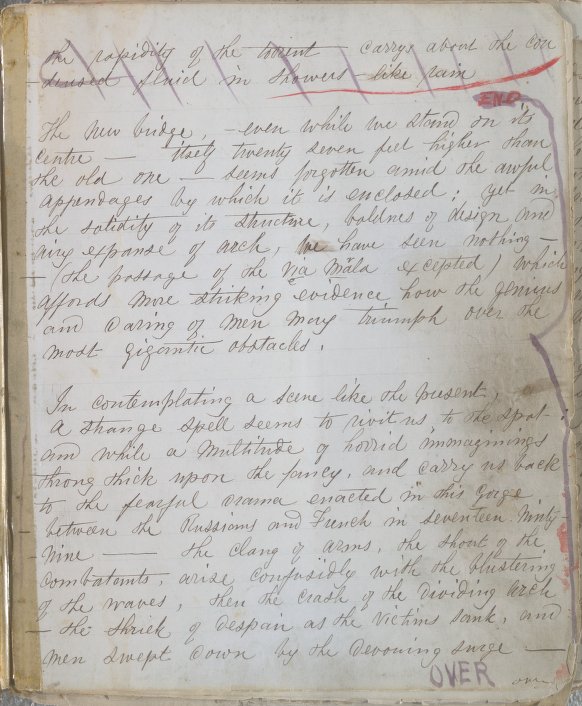 the rapidity of the torrent - carrys about the con
densed fluid in showers - like rain
END
The new bridge, - even while we stand on its
centre - itself twenty seven feet higher than
the old one - seems forgotten amid the awful
appendages by which it is enclosed; yet in
the solidity of its structure, boldnes of design and
airy expanse of arch, we have seen nothing -
- (the passage of the Via Mäla excepted) which
affords more striking evidence how the genius
and daring of men may triumph over the
most gigantic obstacles.
In contemplating a scene like the present,
a strange spell seems to rivit us to the spot -
and while a multitude of horrid immaginings
throng thick upon the fancy, and carry us back
to the fearful drama enacted in this Gorge
between the Russians and French in seventeen Ninty
Nine - The clang of arms, the shout of the
combatants, arise confusidly with the blustering
of the waves, then the crash of the dividing arch
- the shriek of despair as the victims sank, and
men swept down by the devouring surge -
OVER over